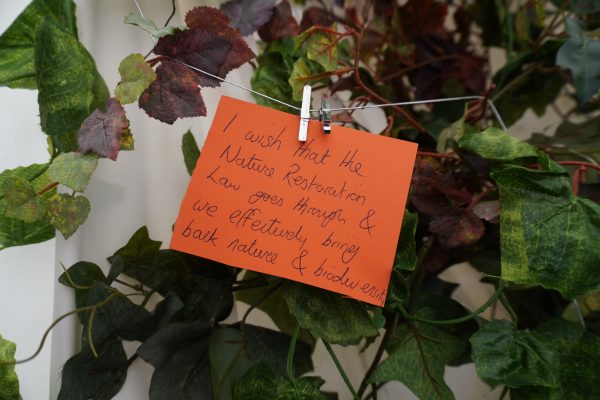 I wish that the
Nature Restoration
Law goes through &
we effectively bring
back nature & biodiversity